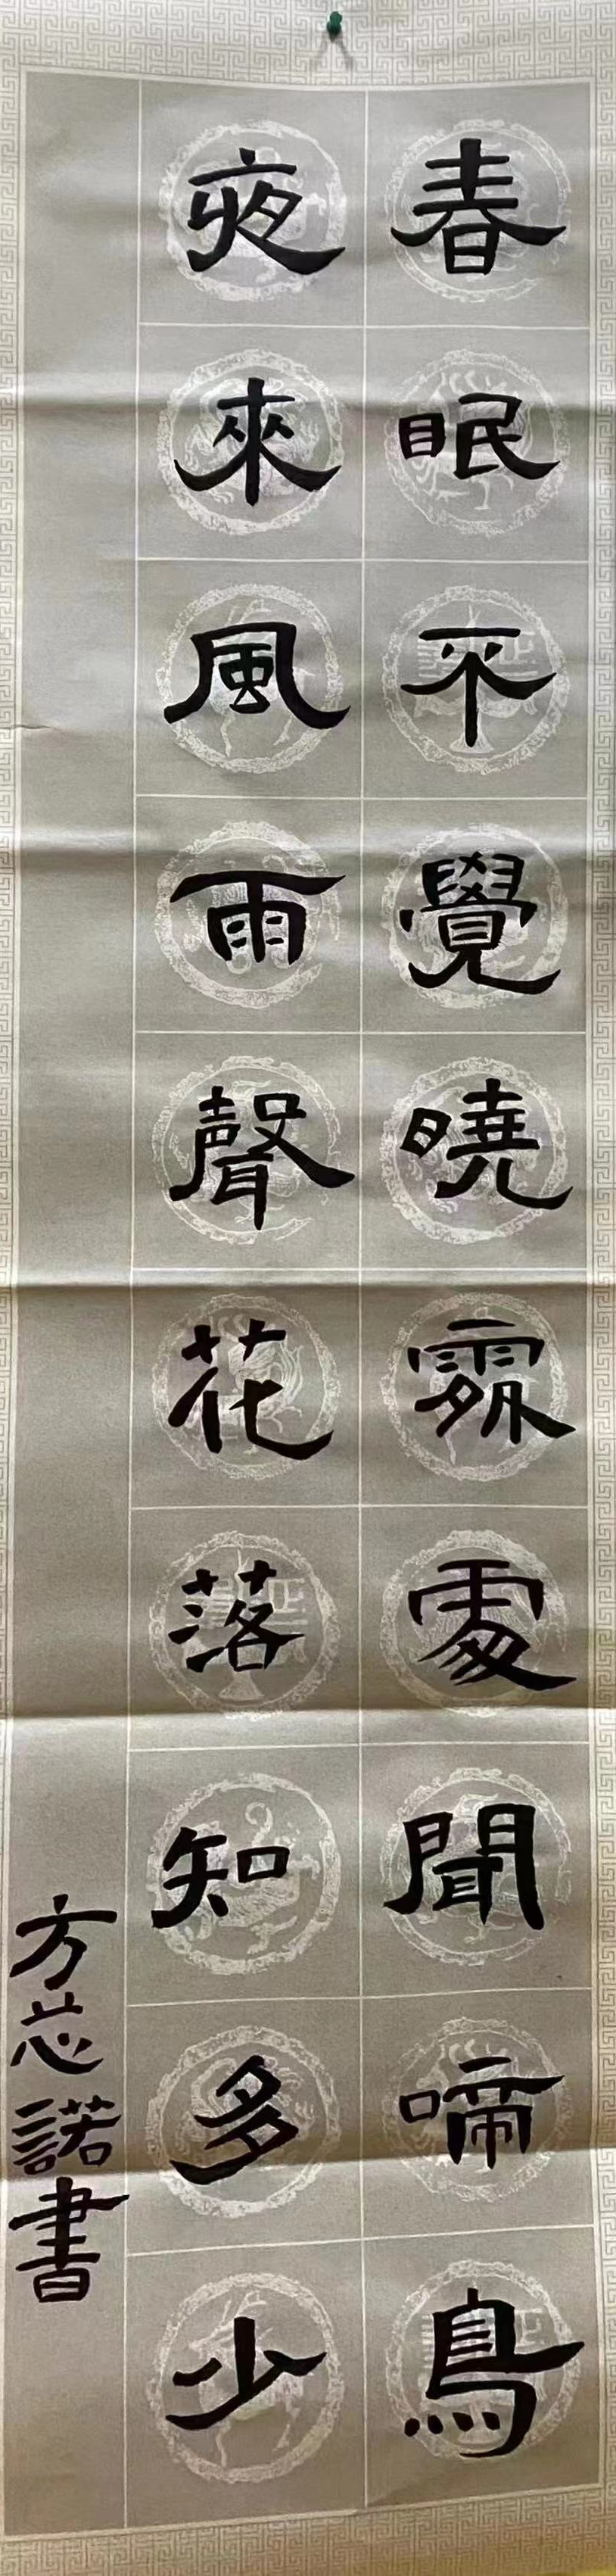 春眠不覺曉處處聞啼鳥
夜來風雨聲花落知多少
方芯諾書